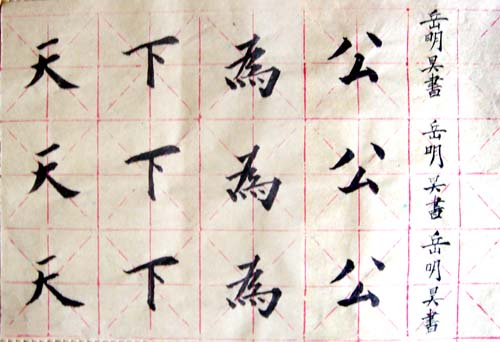 天下為公
天下為公
天下為公
岳明昊書 岳明昊書 岳明昊書